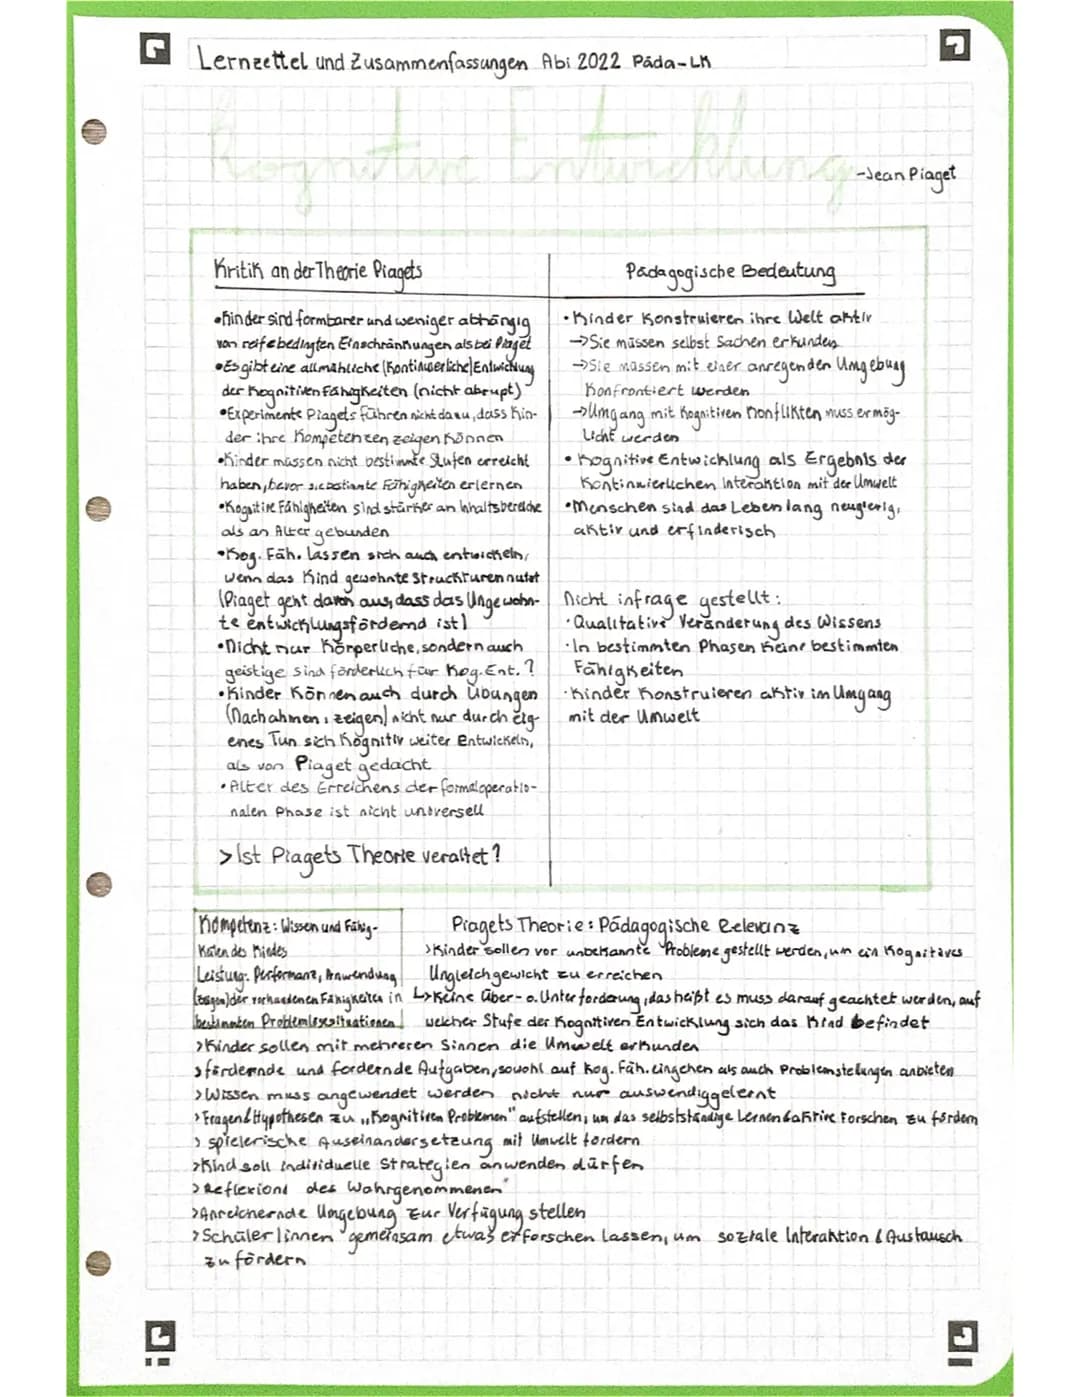 Lernzettel und Zusammenfassungen Abi 2022 Päda-LK
Kognitive Entwicklung
-Jean Piaget
Kritik an der Theorie Piagets
•Kinder sind formbarer und weniger abhängig
von reifebedingten Einschränkungen als bei Piaget
•Es gibt eine allmähliche (Kontinuierliche) Entwicklung
der Kognitiven Fähigkeiten (nicht abrupt)
•Experimente Piagets führen nicht dazu, dass Kin-
der ihre Kompetenzen zeigen können
•Kinder müssen nicht bestimmte Stufen erreicht
haben, bevor sie bestimmte Fähigkeiten erlernen
•Kognitive Fähigkeiten sind stärker an Inhaltsbereiche
als an Alter gebunden
•Kog. Fäh. lassen sich auch entwickeln,
wenn das Kind gewohnte Struckturen nutzt
(Piaget geht davon aus, dass das Ungewohn-
te entwicklungsfördernd ist)
•Nicht nur Körperliche, sondern auch
geistige sind förderlich für Kog. Ent. ?
•Kinder Können auch durch Übungen
(Nachahmen, zeigen) nicht nur durch eig-
enes Tun sich Kognitiv weiter Entwickeln,
als von Piaget gedacht
•Alter des Erreichens der formaloperatio-
nalen Phase ist nicht universell
>Ist Piagets Theorie veraltet?
Pädagogische Bedeutung
•Kinder Konstruieren ihre Welt aktiv
→Sie müssen selbst Sachen erkunden
→Sie müssen mit einer anregenden Umgebung
Konfrontiert werden
→Umgang mit Kognitiven Konflikten muss ermög-
licht werden
•Kognitive Entwicklung als Ergebnis der
Kontinuierlichen Interaktion mit der Umwelt
•Menschen sind das Leben lang neugierig,
aktiv und erfinderisch
Nicht infrage gestellt:
•Qualitative Veränderung des Wissens
•In bestimmten Phasen Keine bestimmten
Fähigkeiten
•Kinder Konstruieren aktiv im Umgang
mit der Umwelt
Kompetenz: Wissen und Fähig-
Keiten des Kindes
Leistung: Performanz, Anwendung
der vorhandenen Fähigkeiten in
bestimmten Problemlösesituationen
Piagets Theorie: Pädagogische Relevanz
>Kinder sollen vor unbekannte Probleme gestellt werden, um ein Kognitives
Ungleichgewicht zu erreichen
↳Keine Über- o. Unterforderung, das heißt es muss darauf geachtet werden, auf
welcher Stufe der Kognitiven Entwicklung sich das Kind befindet
>Kinder sollen mit mehreren Sinnen die Umwelt erkunden
>fördernde und fordernde Aufgaben, sowohl auf Kog. Fäh. eingehen als auch Problemstellungen anbieten
>Wissen muss angewendet werden nicht nur auswendiggelernt
>Fragen & Hypothesen zu „Kognitiven Problemen" aufstellen, um das selbstständige Lernen & aktive Forschen zu fördern
> spielerische Auseinandersetzung mit Umwelt fördern
>Kind soll individuelle Strategien anwenden dürfen
>Reflexion des Wahrgenommenen
>Anreichernde Umgebung zur Verfügung stellen
>Schüler/innen gemeinsam etwas erforschen lassen, um soziale Interaktion & Austausch
zu fördern